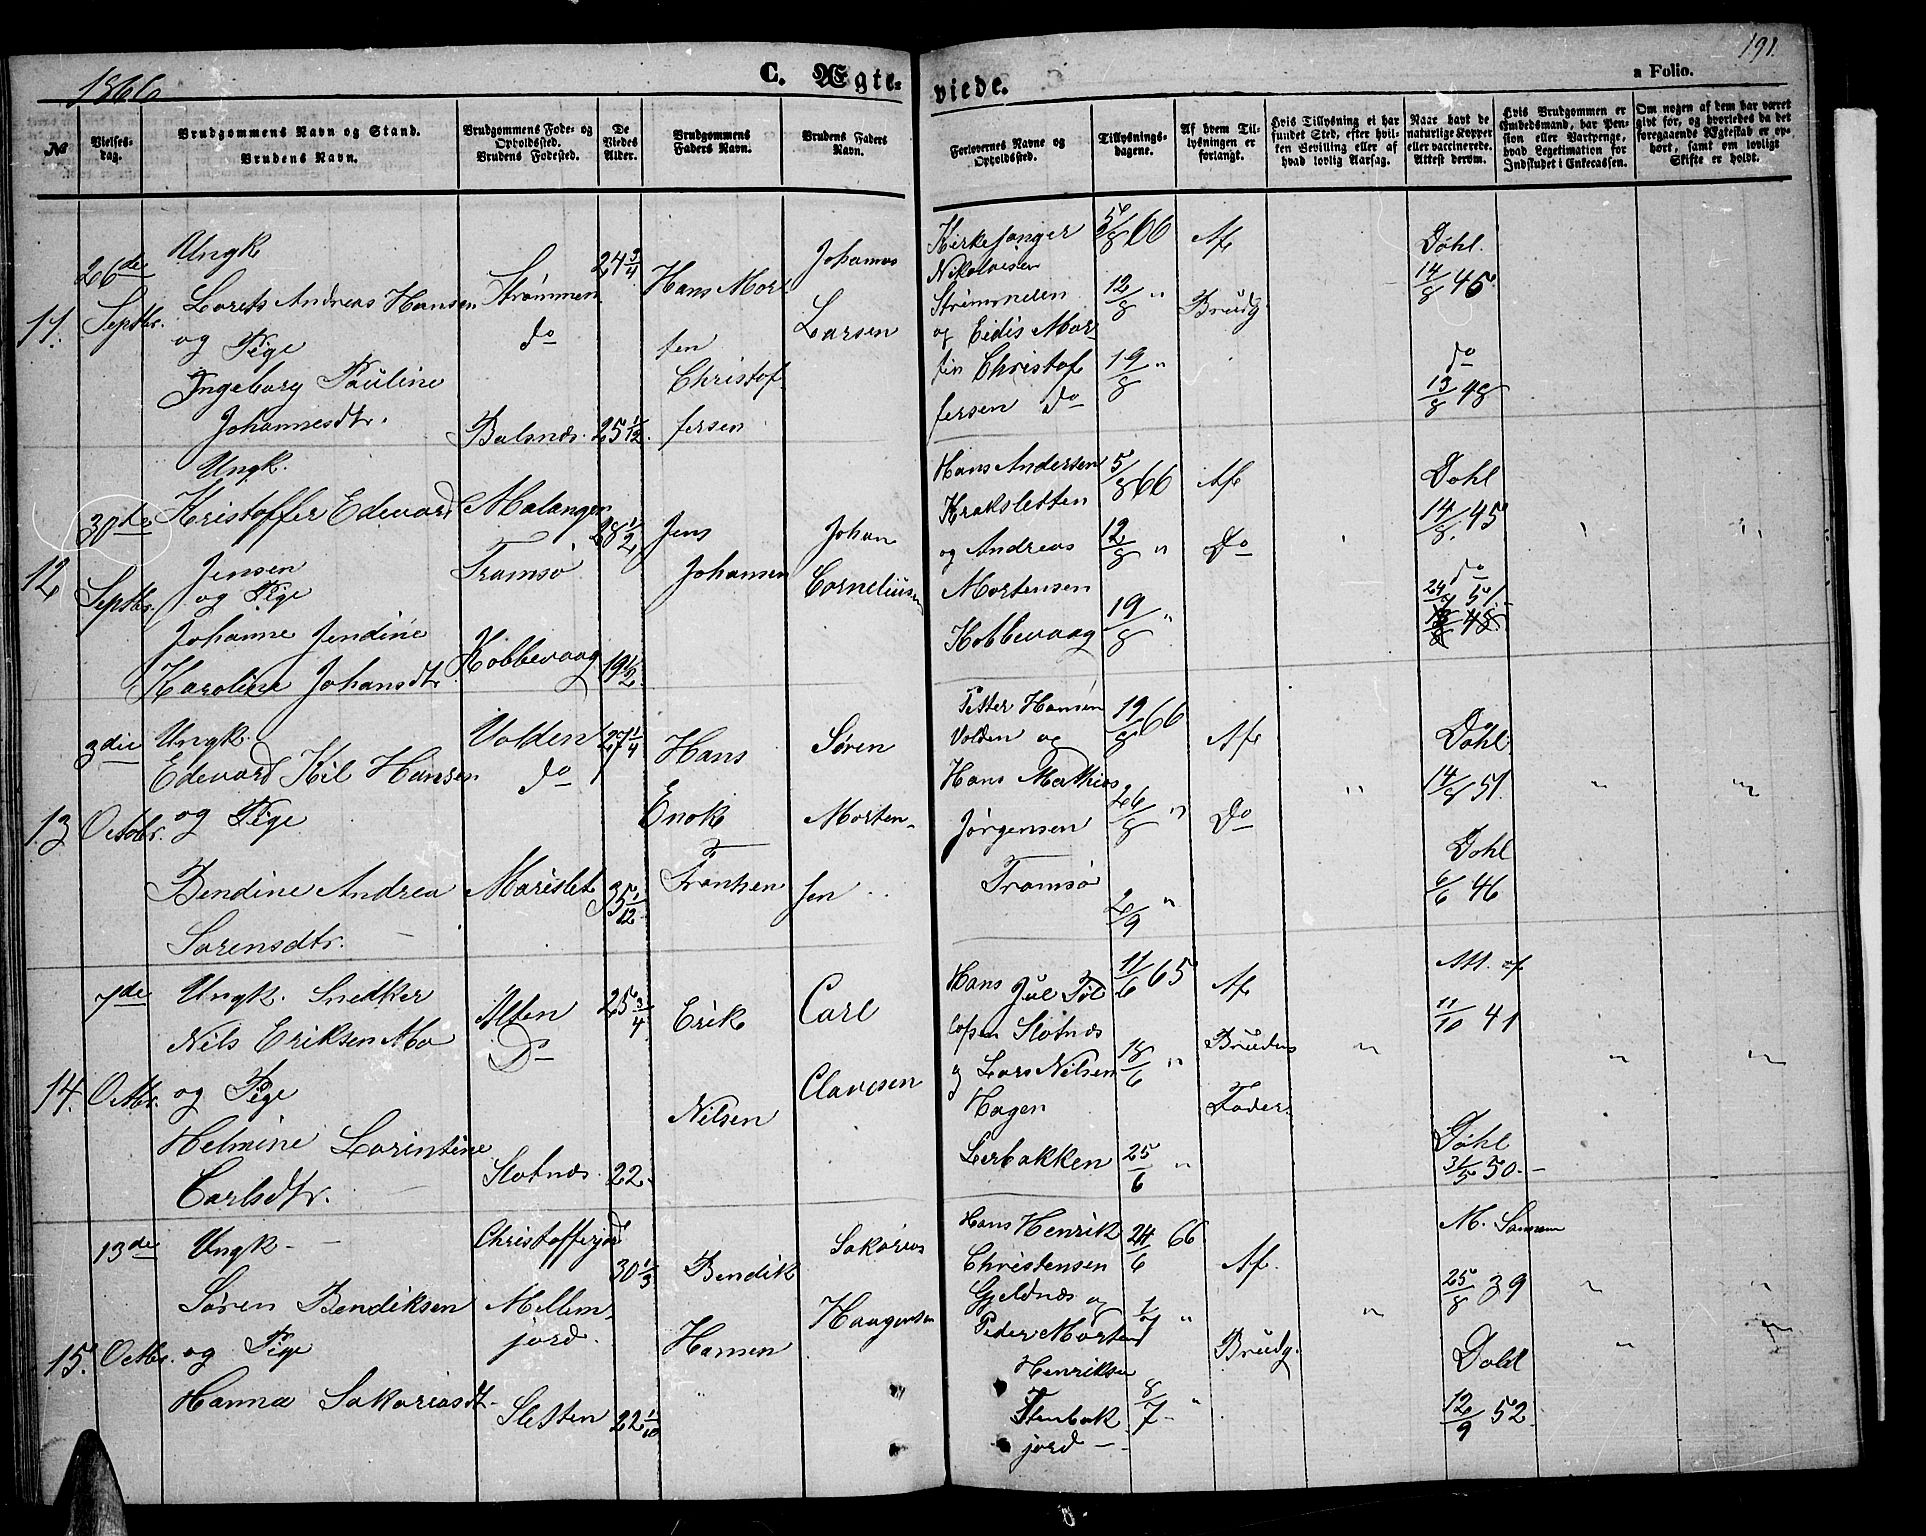 1866
C. Ægte-
viede.
191.
a Folio.
№
Vielses-
dag.
Brudgommens Navn og Stand.
Brudens Navn.
Brudgommens Føde- og
Opholdssted.
Brudens Fødested.
De
Viedes
Alder.
Brudgommens
Faders Navn.
Brudens Faders
Navn.
Forlovernes Navne og
Opholdssted.
Tillysnings-
dagene.
Af hvem Til-
lysningen er
forlangt.
Hvis Tillysning ei har
fundet Sted, efter hvil-
ken Bevilling eller af
hvad lovlig Aarsag.
Naar havt de
naturlige Kopper
eller vaccinerede.
Attest derom.
Hvis Brudgommen er
Embedsmand, har Pen-
sion eller Vartpenge,
hvad Legitimation for
Indskudet i Enkecassen.
Om nogen af dem har været
gift før, og hvorledes da det
foregaaende Ægteskab er op-
hørt, samt om lovligt
Skifte er holdt.
11.
26de
Septbr.
Ungk
Lorets Andreas Hansen
og Pige
Ingeborg Pauline
Johannesdtr.
Strømmen
do
Balsnæs.
24 3/4
25 1/12.
Hans Mor
ten
Christof
fersen
Johannes
Larsen
Kirkesanger
Nikolaisen
Strømmelen
og Eidis Mor-
tin Christof
fersen do
5/8 66
12/8 "
19/8 "
Af
Brudg
Dóhl.
14/8 45
do
13/8 48
12
30te
Septbr.
Ungk.
Kristoffer Edevard
Jensen
og Pige
Johanne Jendine
Karoline Johansdtr
Malangen
Tramsø
Kobbevaag
28 1/2
19 1/2
Jens
Johansen
Johan
Corneliusen
Hans Andersen
Krakslet­ten
og Andreas
Mortensen
Kobbevaag
5/8 66
12/8 "
19/8 "
Af
Do
Dohl
14/8. 45
do
24/7 51.
13.
3die
Octbr.
Ungk.
Edevard Kil Hansen
og Pige
Bendine Andrea
Sorensdtr.
Volden
do
Marislet
27 1/4
35 1/12
Hans
Enok
Frantsen
Søren
Morten-
sen
Petter Hansen
Volden og
Hans Mathias
Jørgensen
Tramsø
19/8 66
26/8 "
2/9 "
Af
Do
Dohl
14/8 51.
Dohl
6/6 46
14.
7de
Octbr.
Ungk. Snedker
Nils Eriksen Mo
og Pige
Helmine Lorintine
Carlsdtr.
Alten
Do
Slotnæs
25 3/4
22
Erik
Nilsen
Carl
Clavesen
Hans Jul Tøl
løfsen Slotnæs
og Lars Nilsen
Hagen
Lerbakken
11/6 65
18/6 "
25/6 "
Af
Brudens
Fader.
Att. af
11/10 41
Dóhl
31/5 50.
15.
13de
Octbr.
Ungk
Søren Bendiksen
og Pige
Hanna Sakariasdt
Christofferjord
Mellem-
jord.
Sletten
30 1/3
22 1/10
Bendik
Hansen
Sakarias
Haagensen
Hans Henrik
Christensen
Gjeldnæs og
Peder Morten
Henriksen
Stenbak
jord
24/6 66
1/7 "
8/7 "
Af.
Brudg.
25/8 39
Dohl
12/9 52